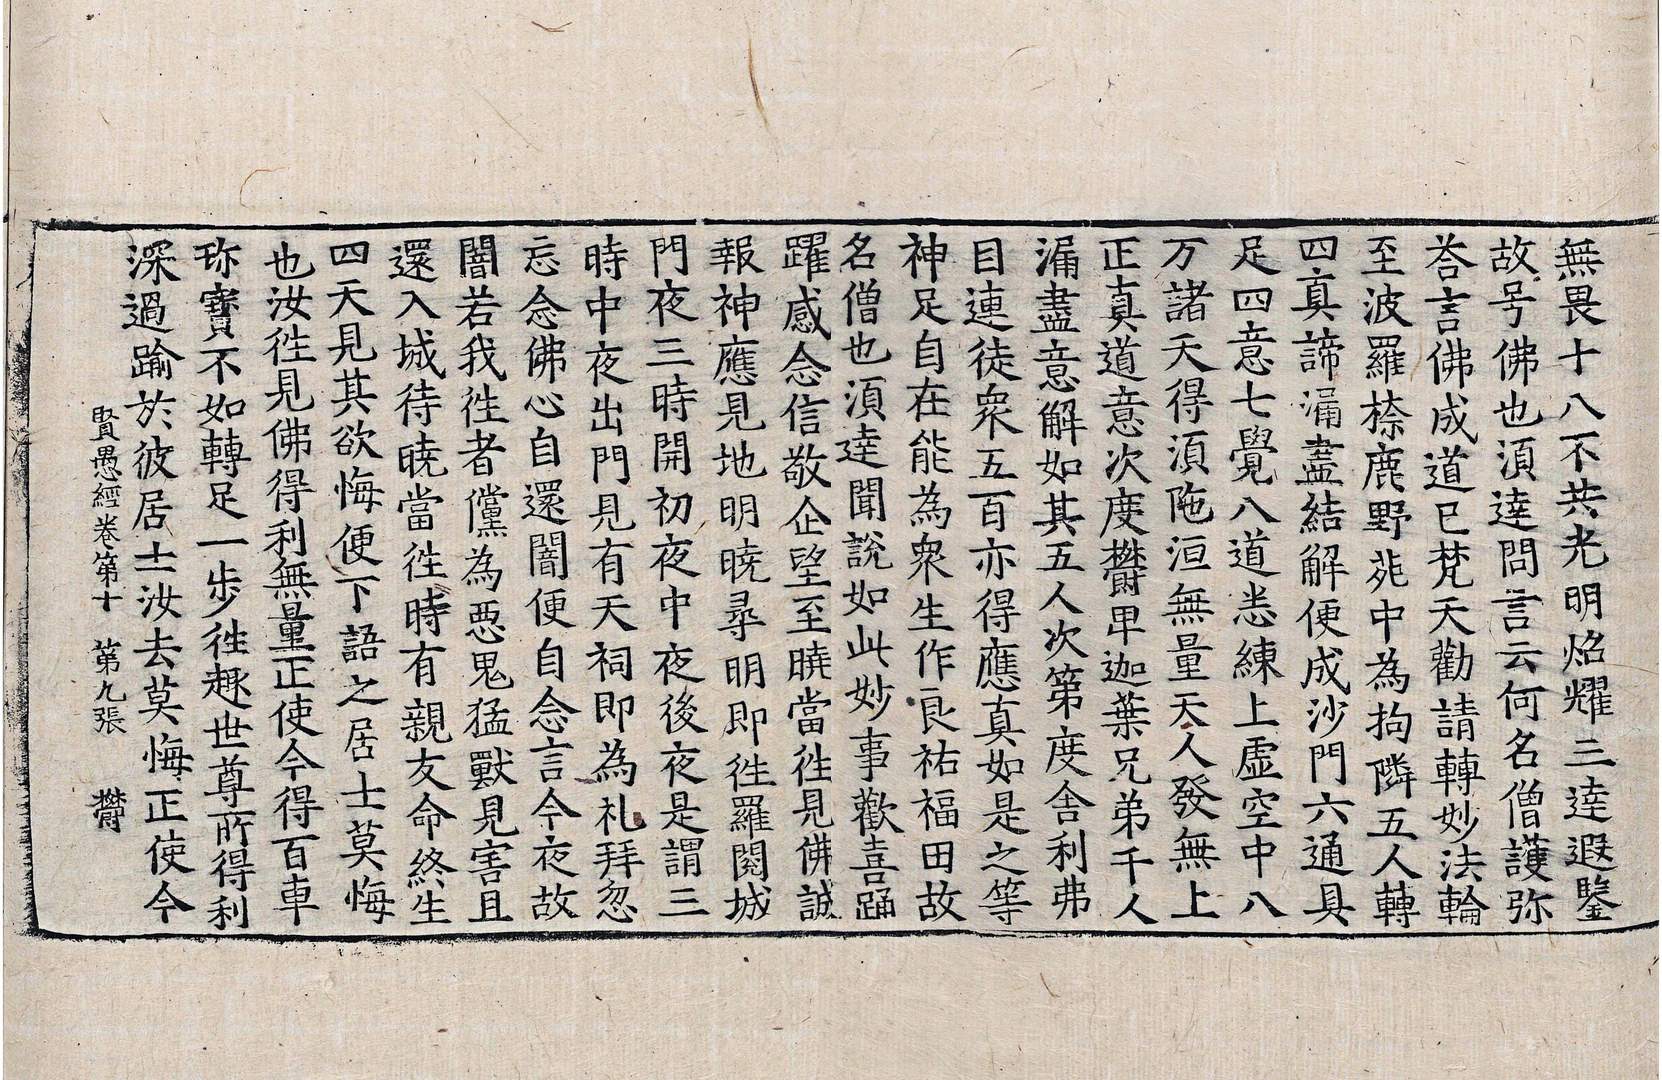 無畏十八不共光明焰耀三達遐鑒
故号佛也湏達問言云何名僧護弥
荅言佛成道已梵天勸請轉妙法輪
至波羅㮈鹿野菀中為拘隣五人轉
四真諦漏盡結解便成沙門六通具
足四意七覺八道悉練上虛空中八
万諸天得湏陁洹無量天人發無上
正真道意次度欝卑迦葉兄弟千人
漏盡意解如其五人次第度舍利弗
目連徒衆五百亦得應真如是之等
神足自在能為衆生作良祐福田故
名僧也湏達聞說如此妙事歡喜踊
躍感念信敬企望至曉當徃見佛誠
報神應見地明曉尋明即徃羅閱城
門夜三時開初夜中夜後夜是謂三
時中夜出門見有天祠即為礼拜忽
忘念佛心自還闇便自念言今夜故
闇若我徃者儻為惡鬼猛獸見害且
還入城待曉當徃時有親友命終生
四天見其欲悔便下語之居士莫悔
也汝徃見佛得利無量正使今得百車
珎寶不如轉足一步徃趣世尊所得利
深過踰於彼居士汝去莫悔正使今
賢愚經卷第十　第九張　欝